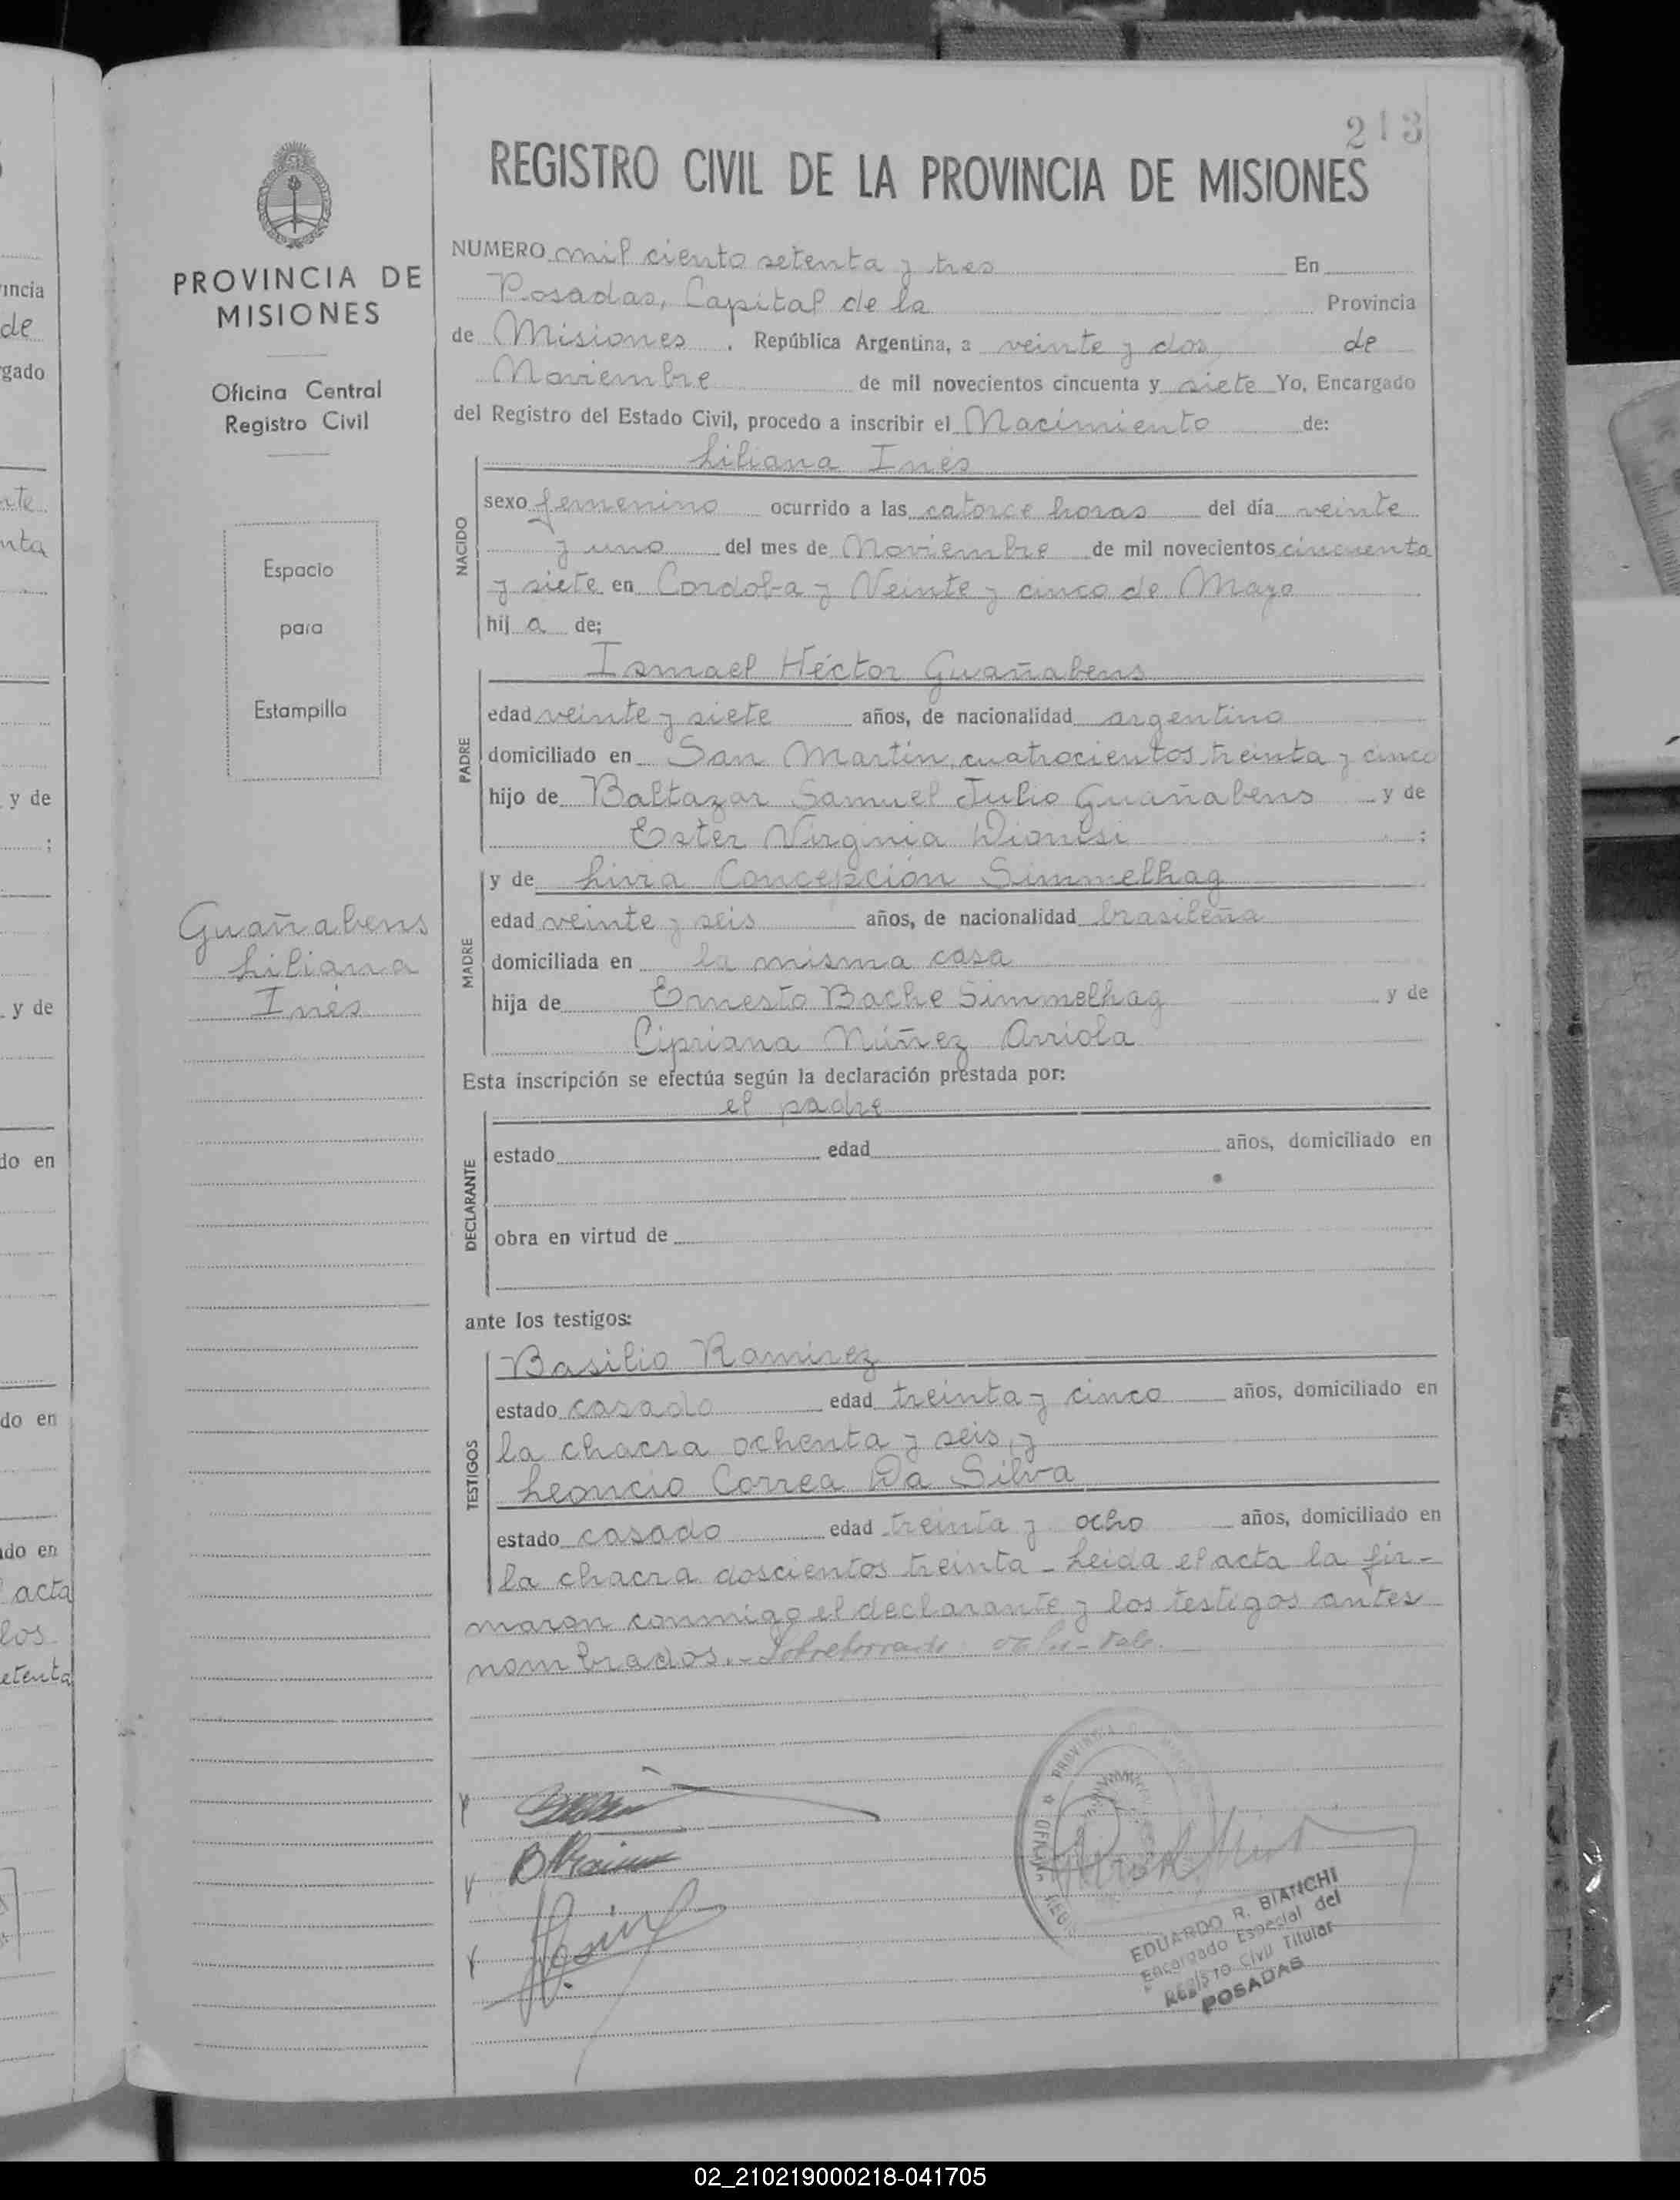 213
REGISTRO CIVIL DE LA PROVINCIA DE MISIONES
PROVINCIA DE
MISIONES
Oficina Central
Registro Civil
Espacio
para
Estampilla
Guañabens
Liliana
Inés
NUMERO mil ciento setenta y tres En
Posadas, Capital de la Provincia
de Misiones . República Argentina, a veinte y dos de
Noviembre de mil novecientos cincuenta y siete Yo, Encargado
del Registro del Estado Civil, procedo a inscribir el Nacimiento de:
Liliana Inés
NACIDO
sexo femenino ocurrido a las catorce horas del día veinte
y uno del mes de Noviembre de mil novecientos cincuenta
y siete en Cordoba y Veinte y cinco de Mayo
hij a de;
Ismael Héctor Guañabens
PADRE
edad veinte y siete años, de nacionalidad argentino
domiciliado en San Martín, cuatrocientos treinta y cinco
hijo de Baltazar Samuel Julio Guañabens y de
Ester Virginia Dionisi :
MADRE
y de Livia Concepción Simmelhag
edad veinte y seis años, de nacionalidad brasileña
domiciliada en la misma casa
hija de Ernesto Bache Simmelhag y de
Cipriana Núñez Arriola
Esta inscripción se efectúa según la declaración prestada por:
el padre
DECLARANTE
estado edad años, domiciliado en
obra en virtud de
ante los testigos:
TESTIGOS
Basilio Ramirez
estado casado edad treinta y cinco años, domiciliado en
la chacra ochenta y seis, y
Leoncio Correa Da Silva
estado casado edad treinta y ocho años, domiciliado en
la chacra doscientos treinta - Leida el acta la fir-
maron conmigo el declarante y los testigos antes
nombrados.- Sobreborrado: ocho - Vale.
EDUARDO R. BIANCHI
Encargado Especial del
Registro Civil Titular
POSADAS
02_210219000218-041705